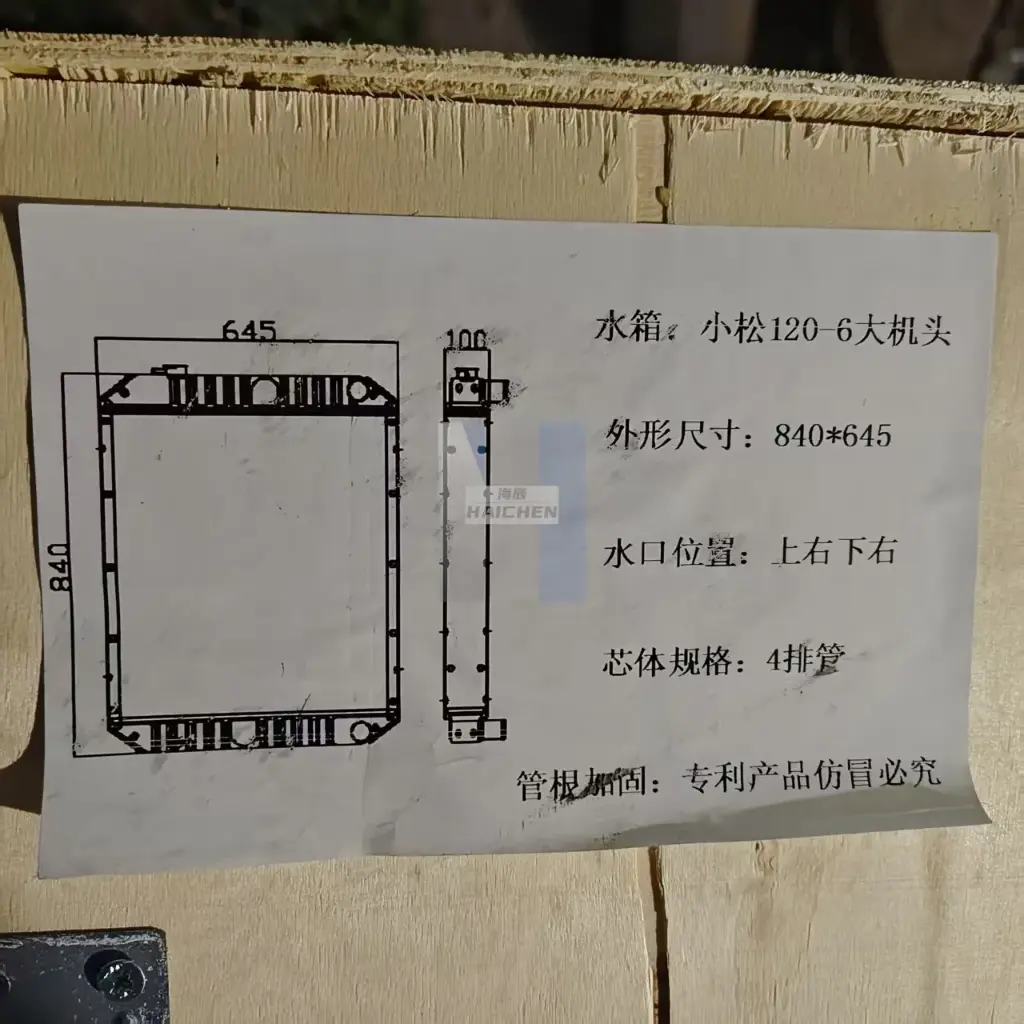 645
100
840
水箱: 小松120-6大机头
外形尺寸: 840*645
水口位置: 上右下右
芯体规格: 4排管
管根加固: 专利产品仿冒必究
海辰
HAICHEN